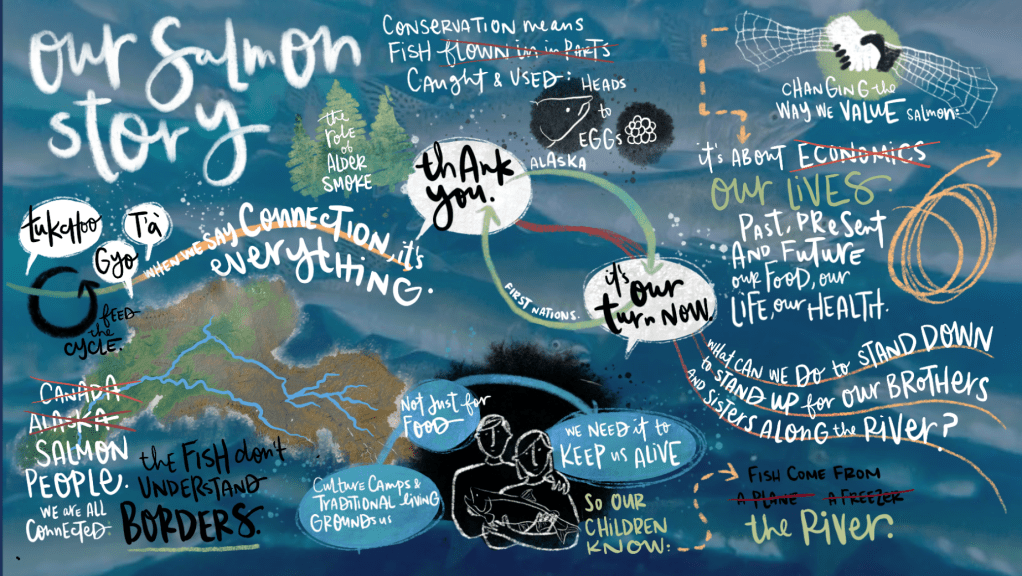 our salmon
story
CONSERVATION means
FISH flown in in PARTS
CAUGHT & USED:
HEADS
to
EGGS
the
role
of
ALDER
SMOKE
thank
you.
ALASKA
CHANGING the
WAY WE VALUE SALMON:
it's ABOUT ECONOMICS
our LIVES
PAST, PRESENT
AND FUTURE
our FOOD, our
LIFE, our HEALTH.
tukchoo
Gyo
T'à
WHEN WE SAY CONNECTION, it's
everything.
FEED
the
CYCLE.
FIRST NATIONS.
it's our
turn NOW.
WHAT CAN WE DO to STAND DOWN
to STAND UP for OUR BROTHERS
AND SISTERS ALONG the RIVER?
CANADA
ALASKA
SALMON
PEOPLE.
WE ARE ALL
CONNECTED.
the FISH don't
UNDERSTAND
BORDERS.
NOT JUST for
FOOD
CULTURE CAMPS &
TRADITIONAL living
GROUNDS us
WE NEED it to
KEEP us ALIVE
SO OUR
CHILDREN
KNOW:
FISH COME FROM
A PLANE A FREEZER
the RIVER.